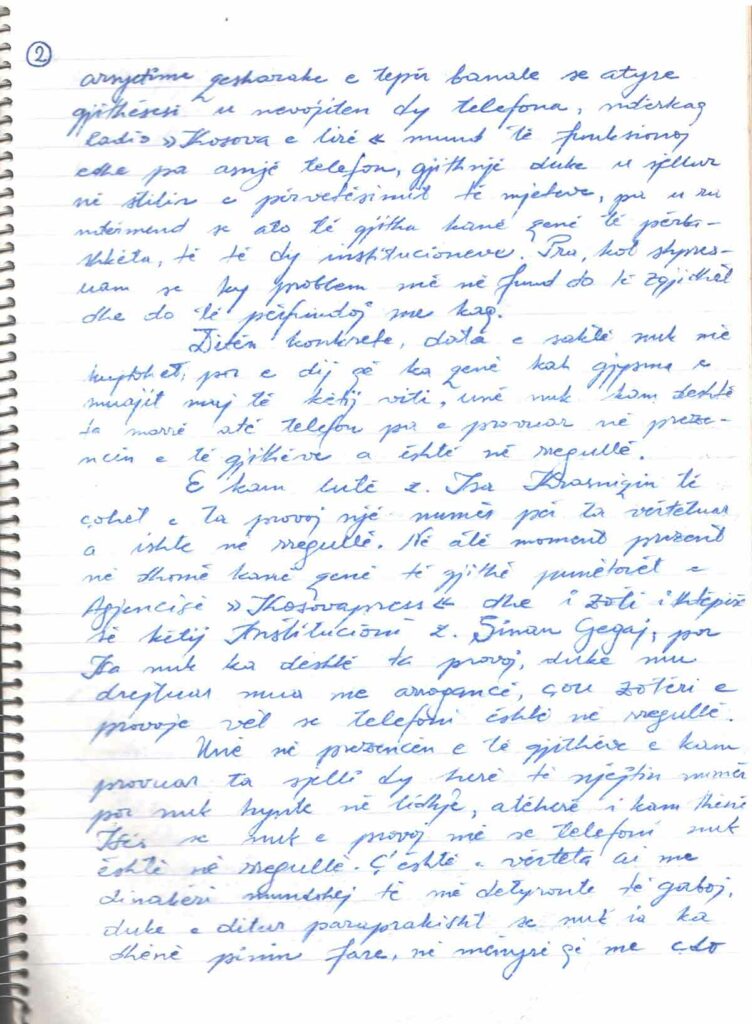 2
arsyetime qesharake e tepër banale se atyre
gjithësesi u nevojiten dy telefona, ndërkaq
Radio »Kosova e lirë« mund të funksionoj
edhe pa asnjë telefon, gjithnjë duke u sjellur
në stilin e përvetësimit të mjeteve, pa u ra
ndërmend se ato të gjitha kanë qenë të përba-
shkëta, të të dy institucioneve. Pra, kot shpres-
uam se ky problem më në fund do të zgjidhët
dhe do të përfundoj me kaq.
Ditën konkrete, data e saktë nuk më
kujtohet, por e dij që ka qenë kah gjysma e
muajit maj të këtij viti, unë nuk kam deshtë
ta marrë atë telefon pa e provuar në preze-
ncën e të gjithëve a është në rregullë.
E kam lutë z. Isa Krasniqin të
çohet e ta provoj një numër për ta vërtetuar
a ishte në rregullë. Në atë moment prezent
në dhomë kanë qenë të gjithë punëtorët e
Agjencisë »Kosovapress« dhe i zoti i shtëpisë
së këtij Institucioni z. Sinan Gegaj, por
Isa nuk ka dështë ta provoj, duke mu
drejtuar mua me arrogancë, çou zotëri e
provoje vël se telefoni është në rregullë.
Unë në prezencën e të gjithëve e kam
provuar ta sjelli dy herë të njejtin numër
por nuk hynte në lidhje, atëherë i kam thënë
Isës se nuk e provoj më se telefoni nuk
është në rregullë. Ç'është e vërteta ai me
dinakëri mundohej të më detyronte të gaboj,
duke e ditur paraprakisht se nuk ia ka
dhënë pinin fare, në mënyrë që me çdo